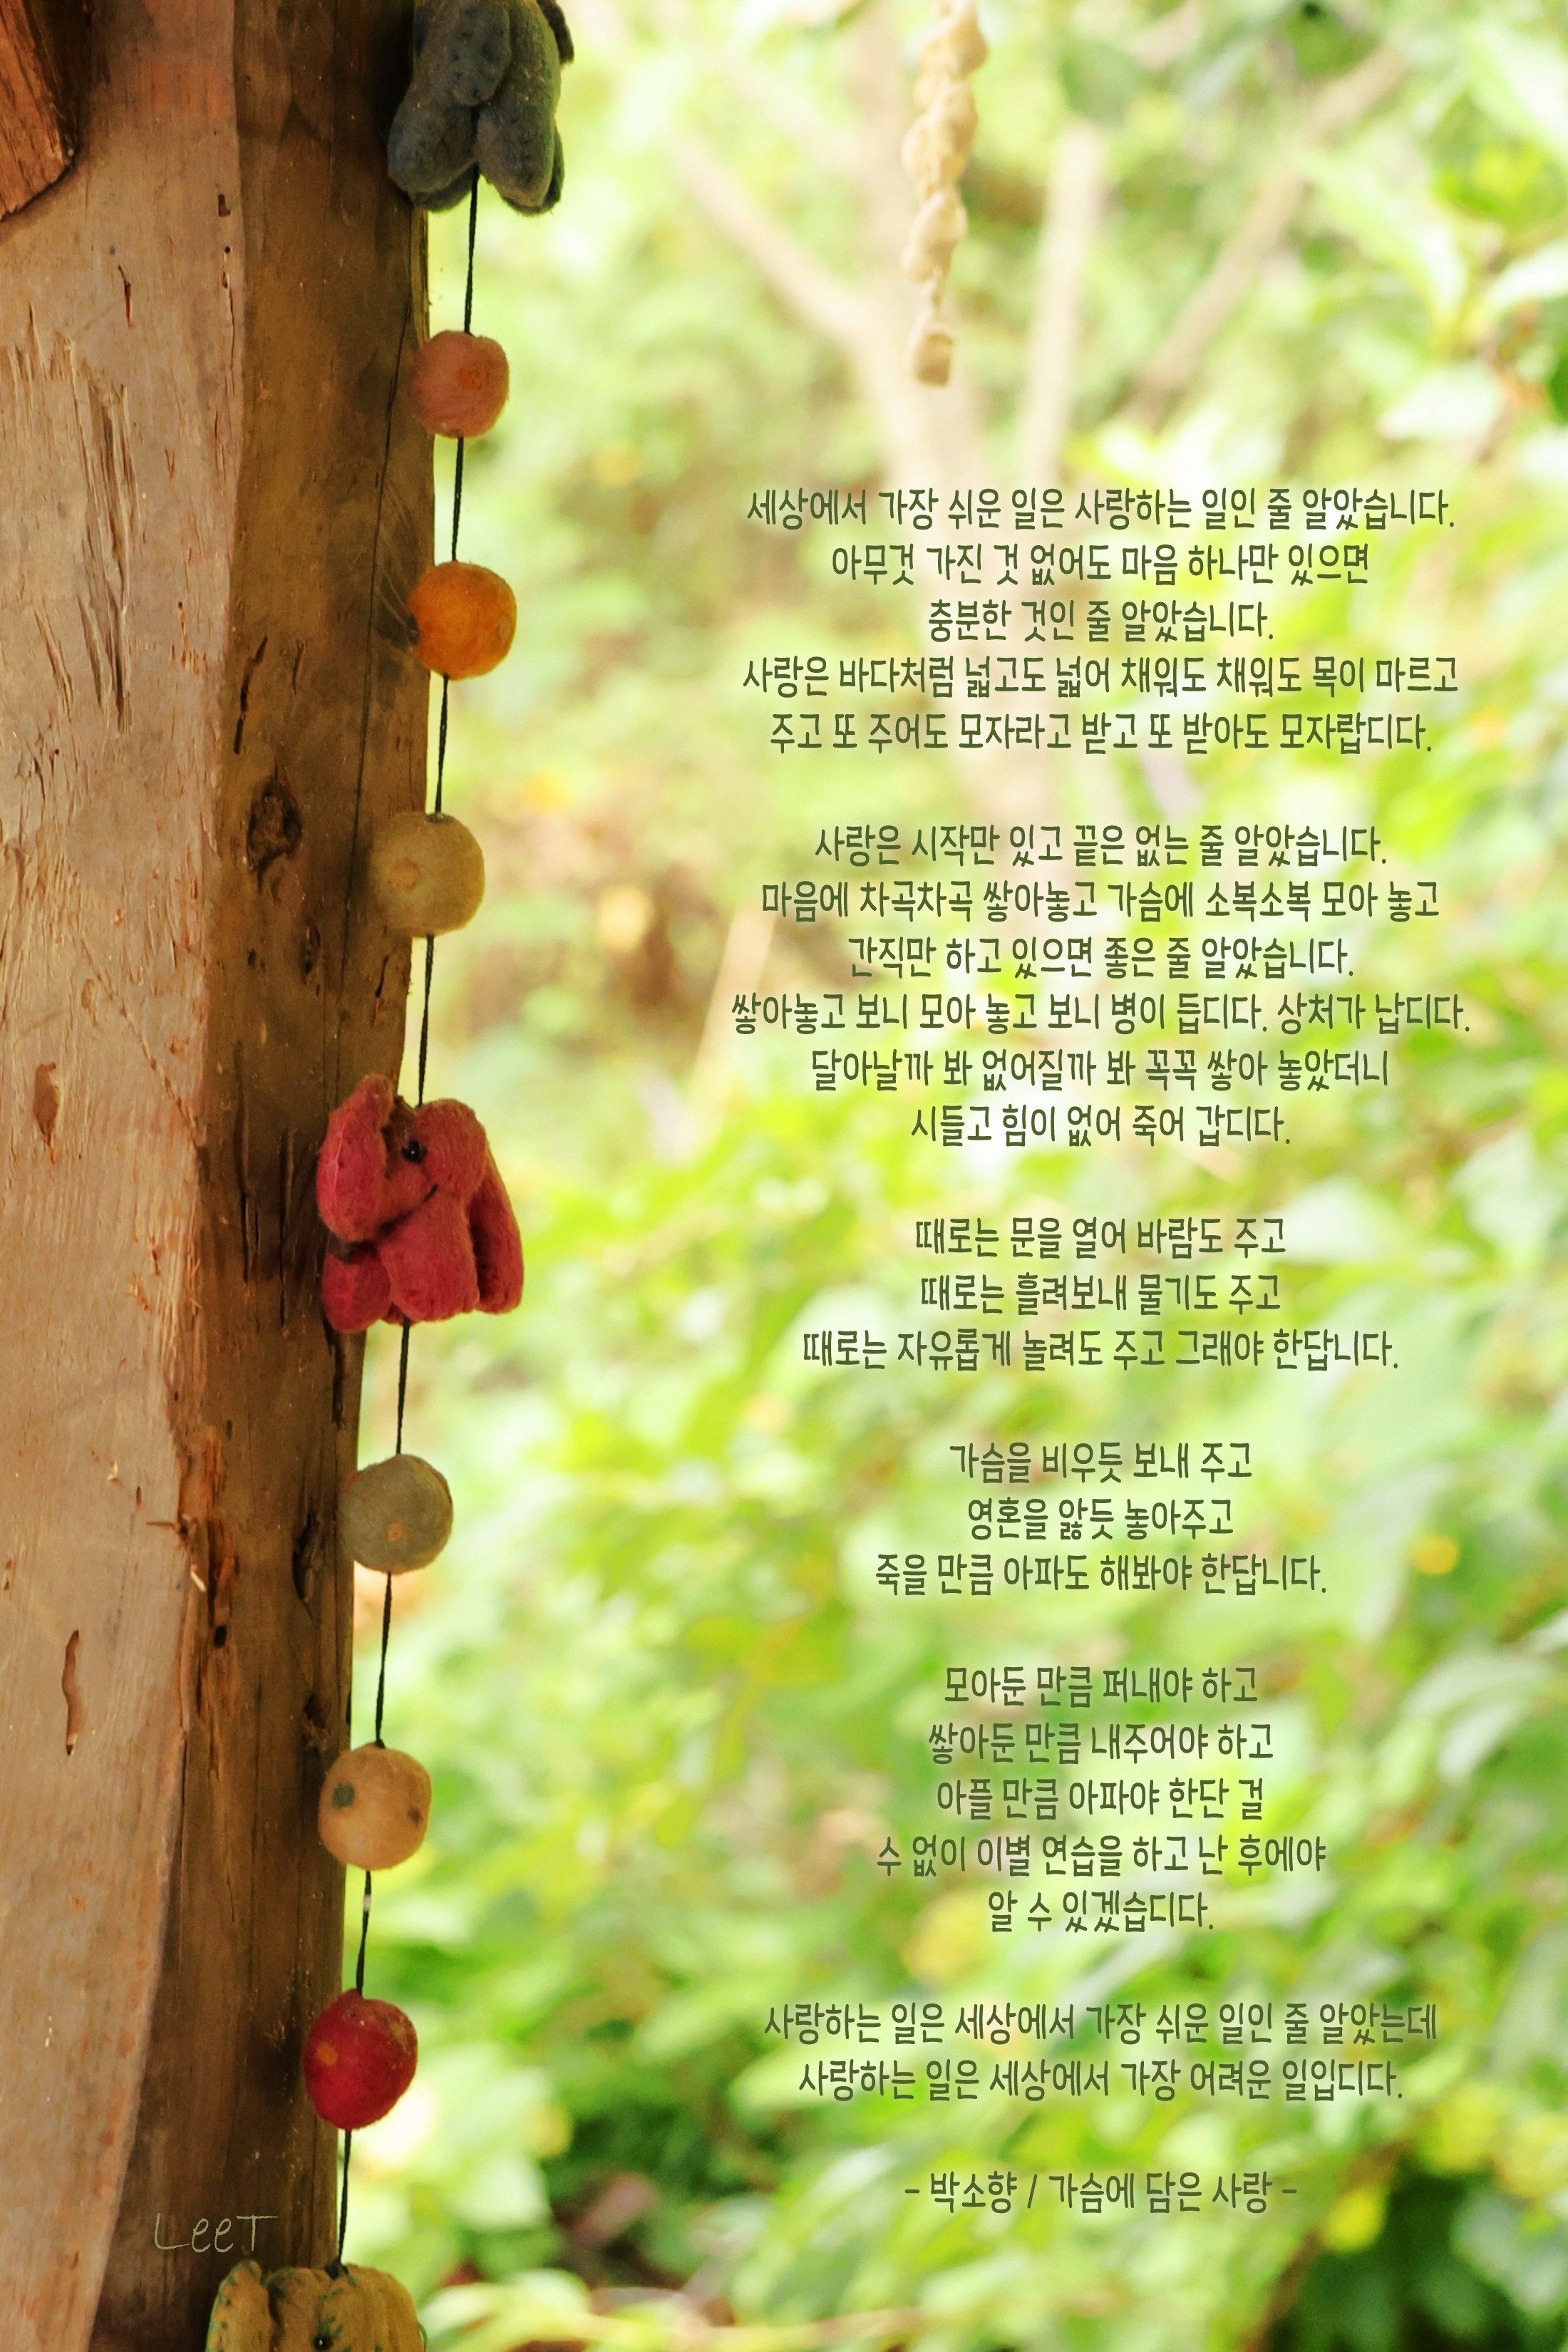 세상에서 가장 쉬운 일은 사랑하는 일인 줄 알았습니다.
아무것 가진 것 없어도 마음 하나만 있으면
충분한 것인 줄 알았습니다.
사랑은 바다처럼 넓고도 넓어 채워도 채워도 목이 마르고
주고 또 주어도 모자라고 받고 또 받아도 모자랍디다.
사랑은 시작만 있고 끝은 없는 줄 알았습니다.
마음에 차곡차곡 쌓아놓고 가슴에 소복소복 모아 놓고
간직만 하고 있으면 좋은 줄 알았습니다.
쌓아놓고 보니 모아 놓고 보니 병이 듭디다. 상처가 납디다.
달아날까 봐 없어질까 봐 꼭꼭 쌓아 놓았더니
시들고 힘이 없어 죽어 갑디다.
때로는 문을 열어 바람도 주고
때로는 흘려보내 물기도 주고
때로는 자유롭게 놀려도 주고 그래야 한답니다.
가슴을 비우듯 보내 주고
영혼을 앓듯 놓아주고
죽을 만큼 아파도 해봐야 한답니다.
모아둔 만큼 퍼내야 하고
쌓아둔 만큼 내주어야 하고
아플 만큼 아파야 한단 걸
수 없이 이별 연습을 하고 난 후에야
알 수 있겠습디다.
사랑하는 일은 세상에서 가장 쉬운 일인 줄 알았는데
사랑하는 일은 세상에서 가장 어려운 일입디다.
- 박소향 / 가슴에 담은 사랑 -
LeeT